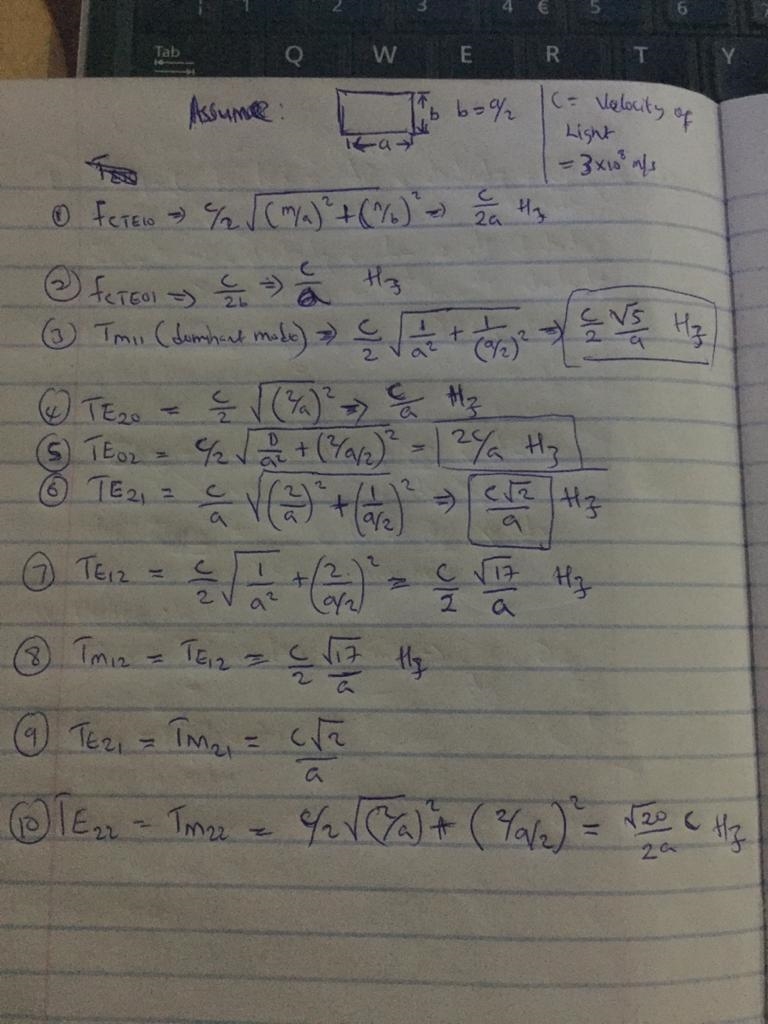 1 2 3 4 € 5 6
Tab Q W E R T Y
Assume: b b = a/2 C = Velocity of
a Light
= 3×10⁸ m/s
① fCTE10 ⇒ c/2 √((m/a)² + (n/b)²) ⇒ c/2a Hz
② fCTE01 ⇒ c/2b ⇒ c/a Hz
③ TM11 (dominant mode) ⇒ c/2 √(1/a² + 1/(a/2)²) ⇒ c/2 √5/a Hz
④ TE20 = c/2 √(2/a)² ⇒ c/a Hz
⑤ TE02 = c/2 √(0/a² + (2/a/2)²) = 2c/a Hz
⑥ TE21 = c/a √((2/a)² + (1/a/2)²) ⇒ c√2/a Hz
⑦ TE12 = c/2 √(1/a² + (2/a/2)²) = c/2 √17/a Hz
⑧ TM12 = TE12 = c/2 √17/a Hz
⑨ TE21 = TM21 = c√2/a
⑩ TE22 = TM22 = c/2 √((2/a)² + (2/a/2)²) = √20/2a c Hz